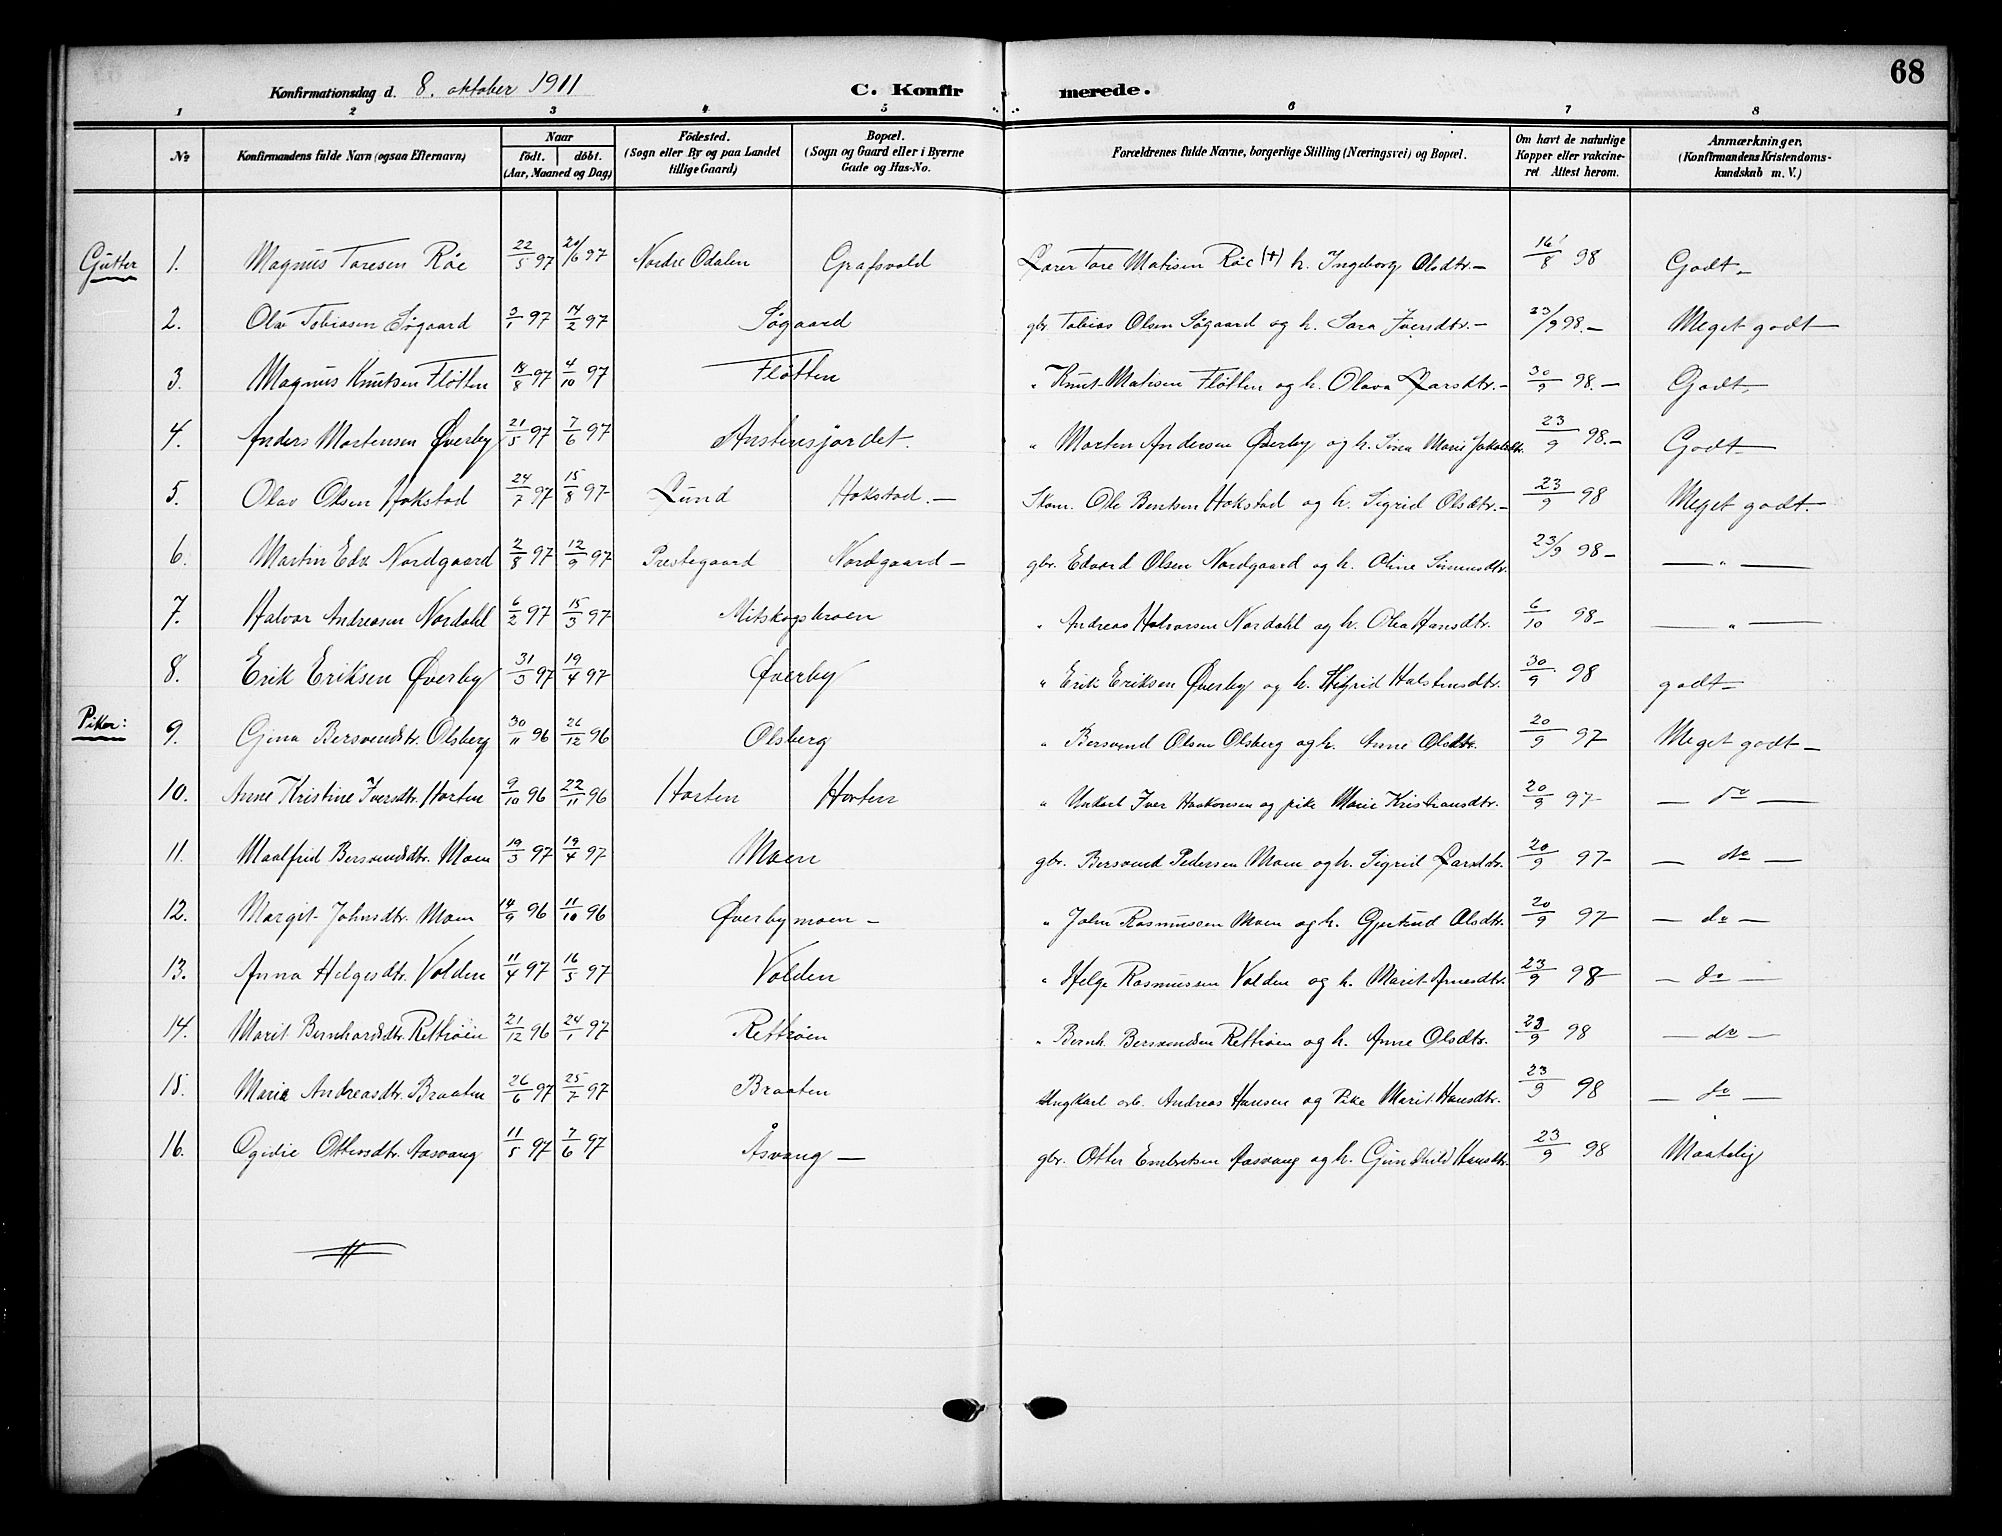 68
Konfirmationsdag d. 8. oktober 1911 C. Konfirmerede.
1 2 3 4 5 6 7 8
No Konfirmandens fulde Navn (ogsaa Efternavn) Naar födt. döbt. (Aar, Maaned og Dag) Födested. (Sogn eller By og paa Landet tillige Gaard) Bopæl. (Sogn og Gaard eller i Byerne Gade og Hus-No. Forældrenes fulde Navne, borgerlige Stilling (Næringsvei) og Bopæl. Om havt de naturlige Kopper eller vakcineret Attest herom. Anmærkninger. (Konfirmandens Kristendomskundskab m. V.)
Gutter 1. Magnus Toresen Röe 22/5 97 20/6 97 Nordre Odalen Grafsvold Lærer Tore Matisen Röe (+) h. Ingeborg Olsdtr.- 16/8 98 Godt-
2. Olav Tobiasen Søgaard 3/1 97 14/2 97 Søgaard gbr. Tobias Olsen Søgaard og h. Sara Iversdtr.- 23/9 98.- Meget godt-
3. Magnus Knutsen Fløtten 18/8 97 4/10 97 Fløtten " Knut Matisen Fløtten og h. Olava Larsdtr.- 30/9 98.- Godt-
4. Anders Mortensen Øverby 21/5 97 7/6 97 Anstensjordet. " Morten Andersen Øverby og h. Sina Marie Jakobsdtr. 23/9 98.- Godt-
5. Olav Olsen Hokstad 24/7 97 15/8 97- Lund Hokstad.- Skom. Ole Bentsen Hokstad og h. Sigrid Olsdtr.- 23/9 98 Meget godt.-
6. Martin Edv. Nordgaard 2/8 97 12/9 97 Prestegaard Nordgaard- gbr. Edvard Olsen Nordgaard og h. Oline Simensdtr. 23/9 98- - " -
7. Halvor Andreasen Nordahl 6/2 97 15/3 97 Mitskogsbroen " Andreas Halvorsen Nordahl og h. Olea Hansdtr. 6/10 98- - " -
8. Erik Eriksen Øverby 31/3 97 19/4 97 Øverby " Erik Eriksen Øverby og h. Sigrid Halstensdtr. 30/9 98 godt-
Piker: 9. Gina Bersvendsdtr. Olsberg 30/11 96 26/12 96 Olsberg " Bersvend Olsen Olsberg og h. Anne Olsdtr. 20/9 97- Meget godt-
10. Anne Kristine Iversdtr. Horten 9/10 96 22/11 96 Horten Horten " Unkarl Iver Haakonsen og pike Marie Kristiansdtr. 20/9 97- - do -
11. Maalfrid Bersvendsdtr. Moen 19/3 97 19/4 97 Moen gbr. Bersvend Pedersen Moen og h. Sigrid Larsdtr. 20/9 97- - do -
12. Margit Johnsdtr. Moen 14/9 96 11/10 96 Øverbymoen- " John Rasmussen Moen og h. Gjertrud Olsdtr. 20/9 97- - do -
13. Anna Helgesdtr. Volden 11/4 97 16/5 97 Volden " Helge Rasmussen Volden og h. Marit Arnesdtr. 23/9 98- - do -
14. Marit Bernhardsdtr. Rettrøen 21/12 96 24/1 97 Rettrøen " Bernh. Bersvendsen Rettrøen og h. Anne Olsdtr. 23/9 98 - do -
15. Marie Andreasdtr. Braaten 26/6 97 25/7 97 Braaten Ungkarl arb. Andreas Hansen og Pike Marit Hansdtr. 23/9 98 - do -
16. Ogidie Ottersdtr. Aasvang 11/5 97 7/6 97 Åsvang - gbr. Otter Embretsen Aasvang og h. Gunhild Hansdtr. 23/9 98 Maatelig